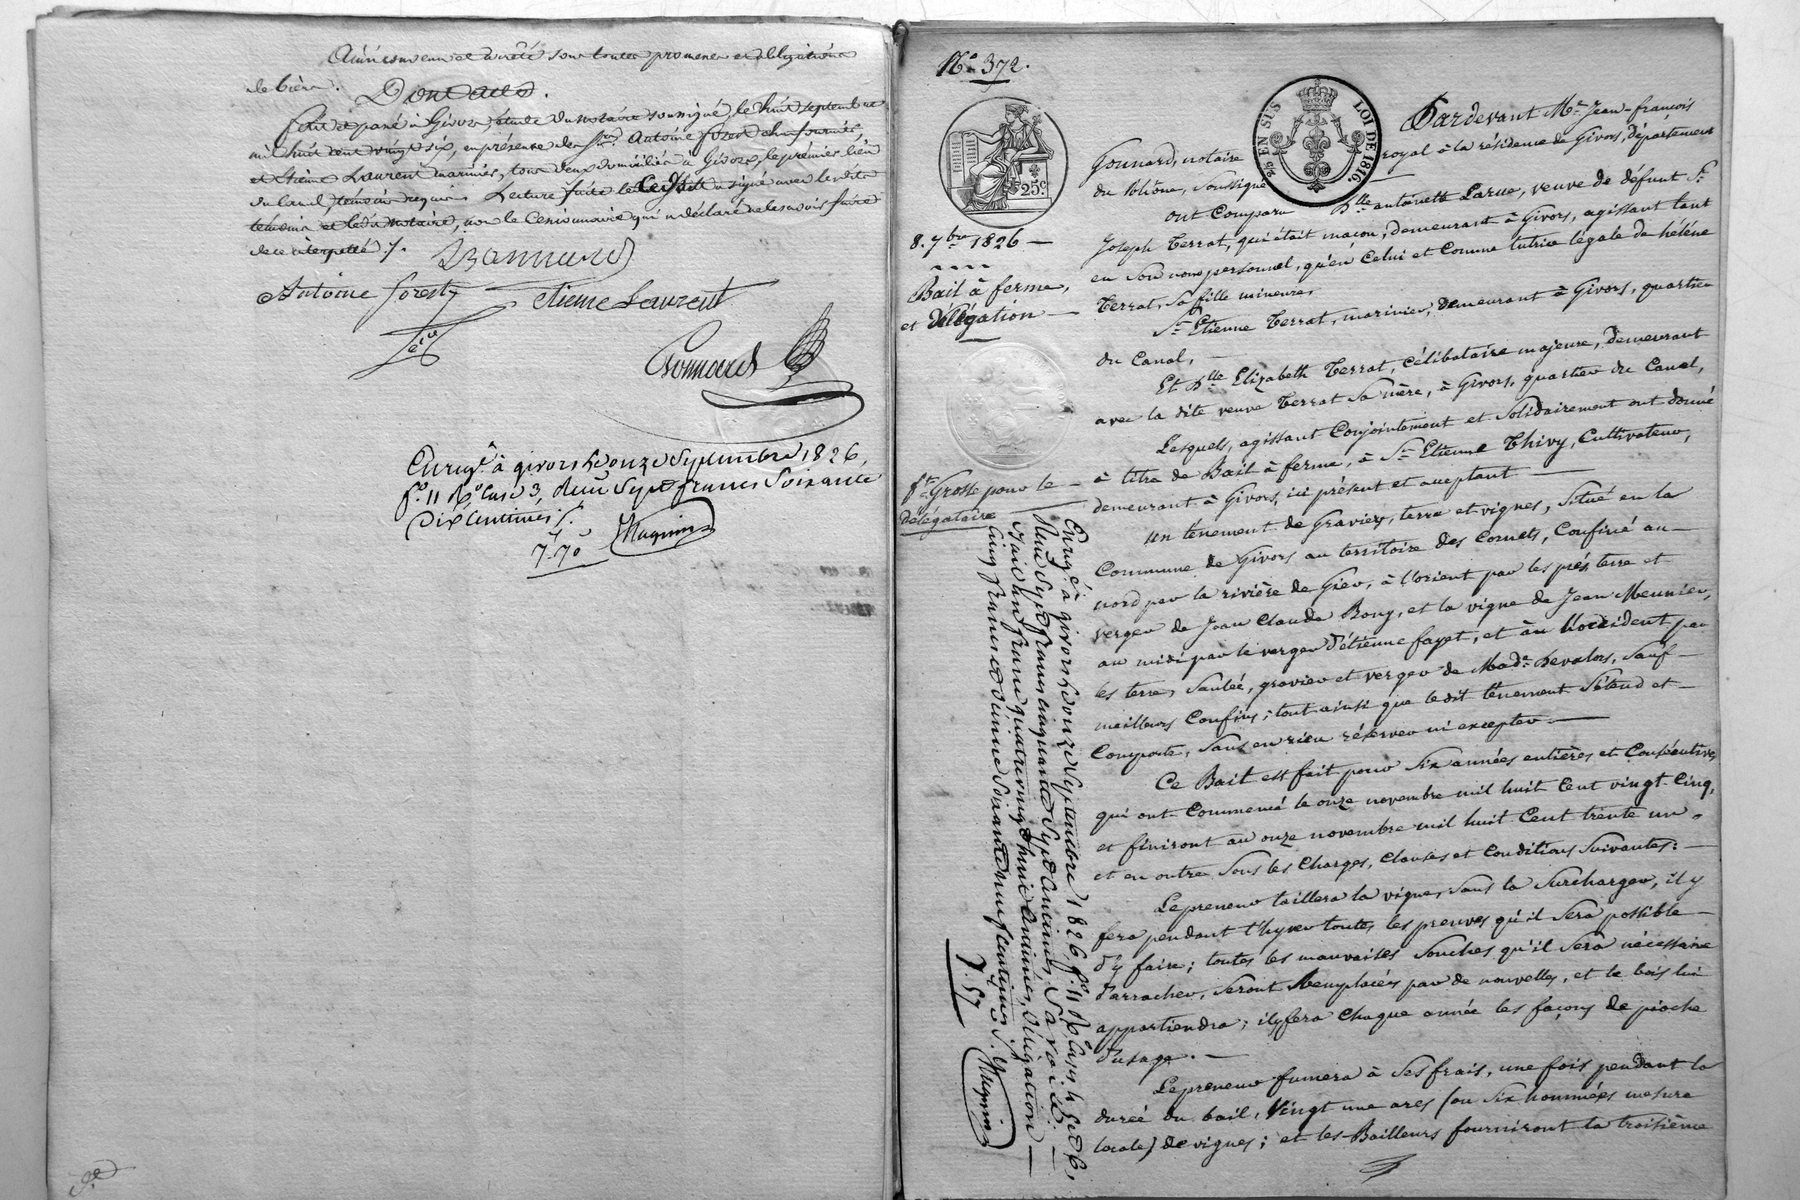 Ainsi convenu et arrêté sous toutes promesses et obligations
de biens. Dont acte.
fait et passé à Givors, étude du notaire soussigné, le huit septembre
mil huit cent vingt six, en présence des Srs Antoine forest chaufournier,
et Etienne Laurent marinier, tous deux domiciliés à Givors, le premier lieu
du Canal, témoins requis. Lecture faite le Cédant a signé avec lesdits
témoins et led. notaire, non le Cessionnaire qui a déclaré ne le savoir faire
de ce interpellé /.
Antoine forest
etienne Laurent
Gonnard
Enregé à givors le onze Septembre 1826,
fo. 11 Ro. Case 3, Reçu Sept francs Soixante
Dix Centimes /.
7-70
Magnin
No. 372.
25 EN SUS
LOI DE 1816.
25c.
Pardevant Me. Jean-françois
Gonnard, notaire royal à la résidence de Givors, département
du Rhône, Soussigné
ont Comparu Dlle antoinette Larue, veuve de défunt Sr.
Joseph Terrat, qui était maçon, demeurant à Givors, agissant tant
en Son nom personnel, qu'en Celui et Comme tutrice légale de hélène
Terrat, Sa fille mineure,
Sr. Etienne Terrat, marinier, demeurant à Givors, quartier
du Canal,
Et Dlle Elizabeth Terrat, Célibataire majeure, demeurant
avec la dite veuve Terrat Sa mère, à Givors, quartier du Canal,
Lesquels, agissant Conjointement et Solidairement ont donné
à titre de Bail à ferme, à Sr. Etienne Thivy, Cultivateur,
demeurant à Givors, ici présent et acceptant
Un tènement de Gravier, terre et vignes, Situé en la
Commune de Givors au territoire des Cornets, Confiné au
nord par la rivière de Gier, à l'orient par les prés, terre et
verger de Jean Claude Bony, et la vigne de Jean Meunier,
au midi par le verger d'étienne fayet, et à l'occident par
les terre, Saulée, gravier et verger de Made. Devalors, Sauf
meilleurs Confins; tout ainsi que ledit tènement S'étend et
Comporte, Sans en rien réserver ni excepter
Ce Bail est fait pour Six années entières et Consécutives
qui ont Commencé le onze novembre mil huit Cent vingt Cinq,
et finiront au onze novembre mil huit Cent trente un,
et en outre Sous les Charges, Clauses et Conditions Suivantes:
Le preneur taillera la vigne, Sans la Surcharger, il y
fera pendant l'hyver toutes les preuves qu'il Sera possible
d'y faire; toutes les mauvaises Souches qu'il Sera nécessaire
d'arracher, Seront Remplacées par de nouvelles, et le bois lui
appartiendra; il y fera Chaque année les façons de pioche
d'usage.
Le preneur fumera à Ses frais, une fois pendant la
durée du bail, Vingt une ares (ou Six hommées mesure
locale) de vignes; et les Bailleurs fourniront la troisième
8. 7bre 1826
Bail à ferme,
et délégation
fte Grosse pour le
délégataire
Enregé à givors le onze Septembre 1826 fo. 11 Ro. Cases 4 Et 6,
Reçu Sept francs cinquante Sept Centimes, Savoir:
Bail un franc quatre vingt huit Centimes, Délégation
Cinq francs et Soixante neuf centimes /.
7.57
Magnin